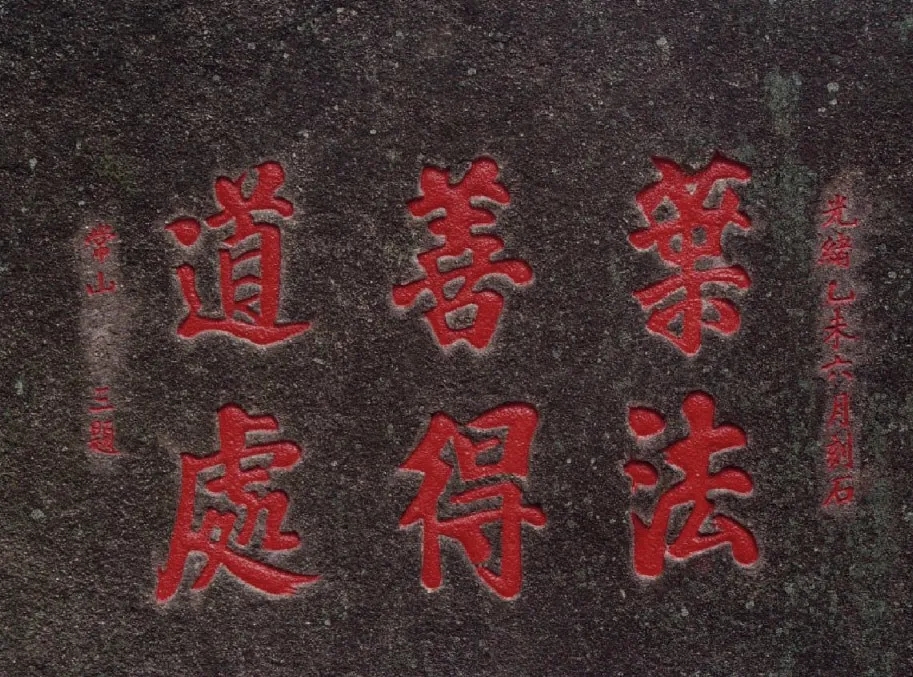 光緒乙未六月刻石
葉法
善得
道處
常山 三題